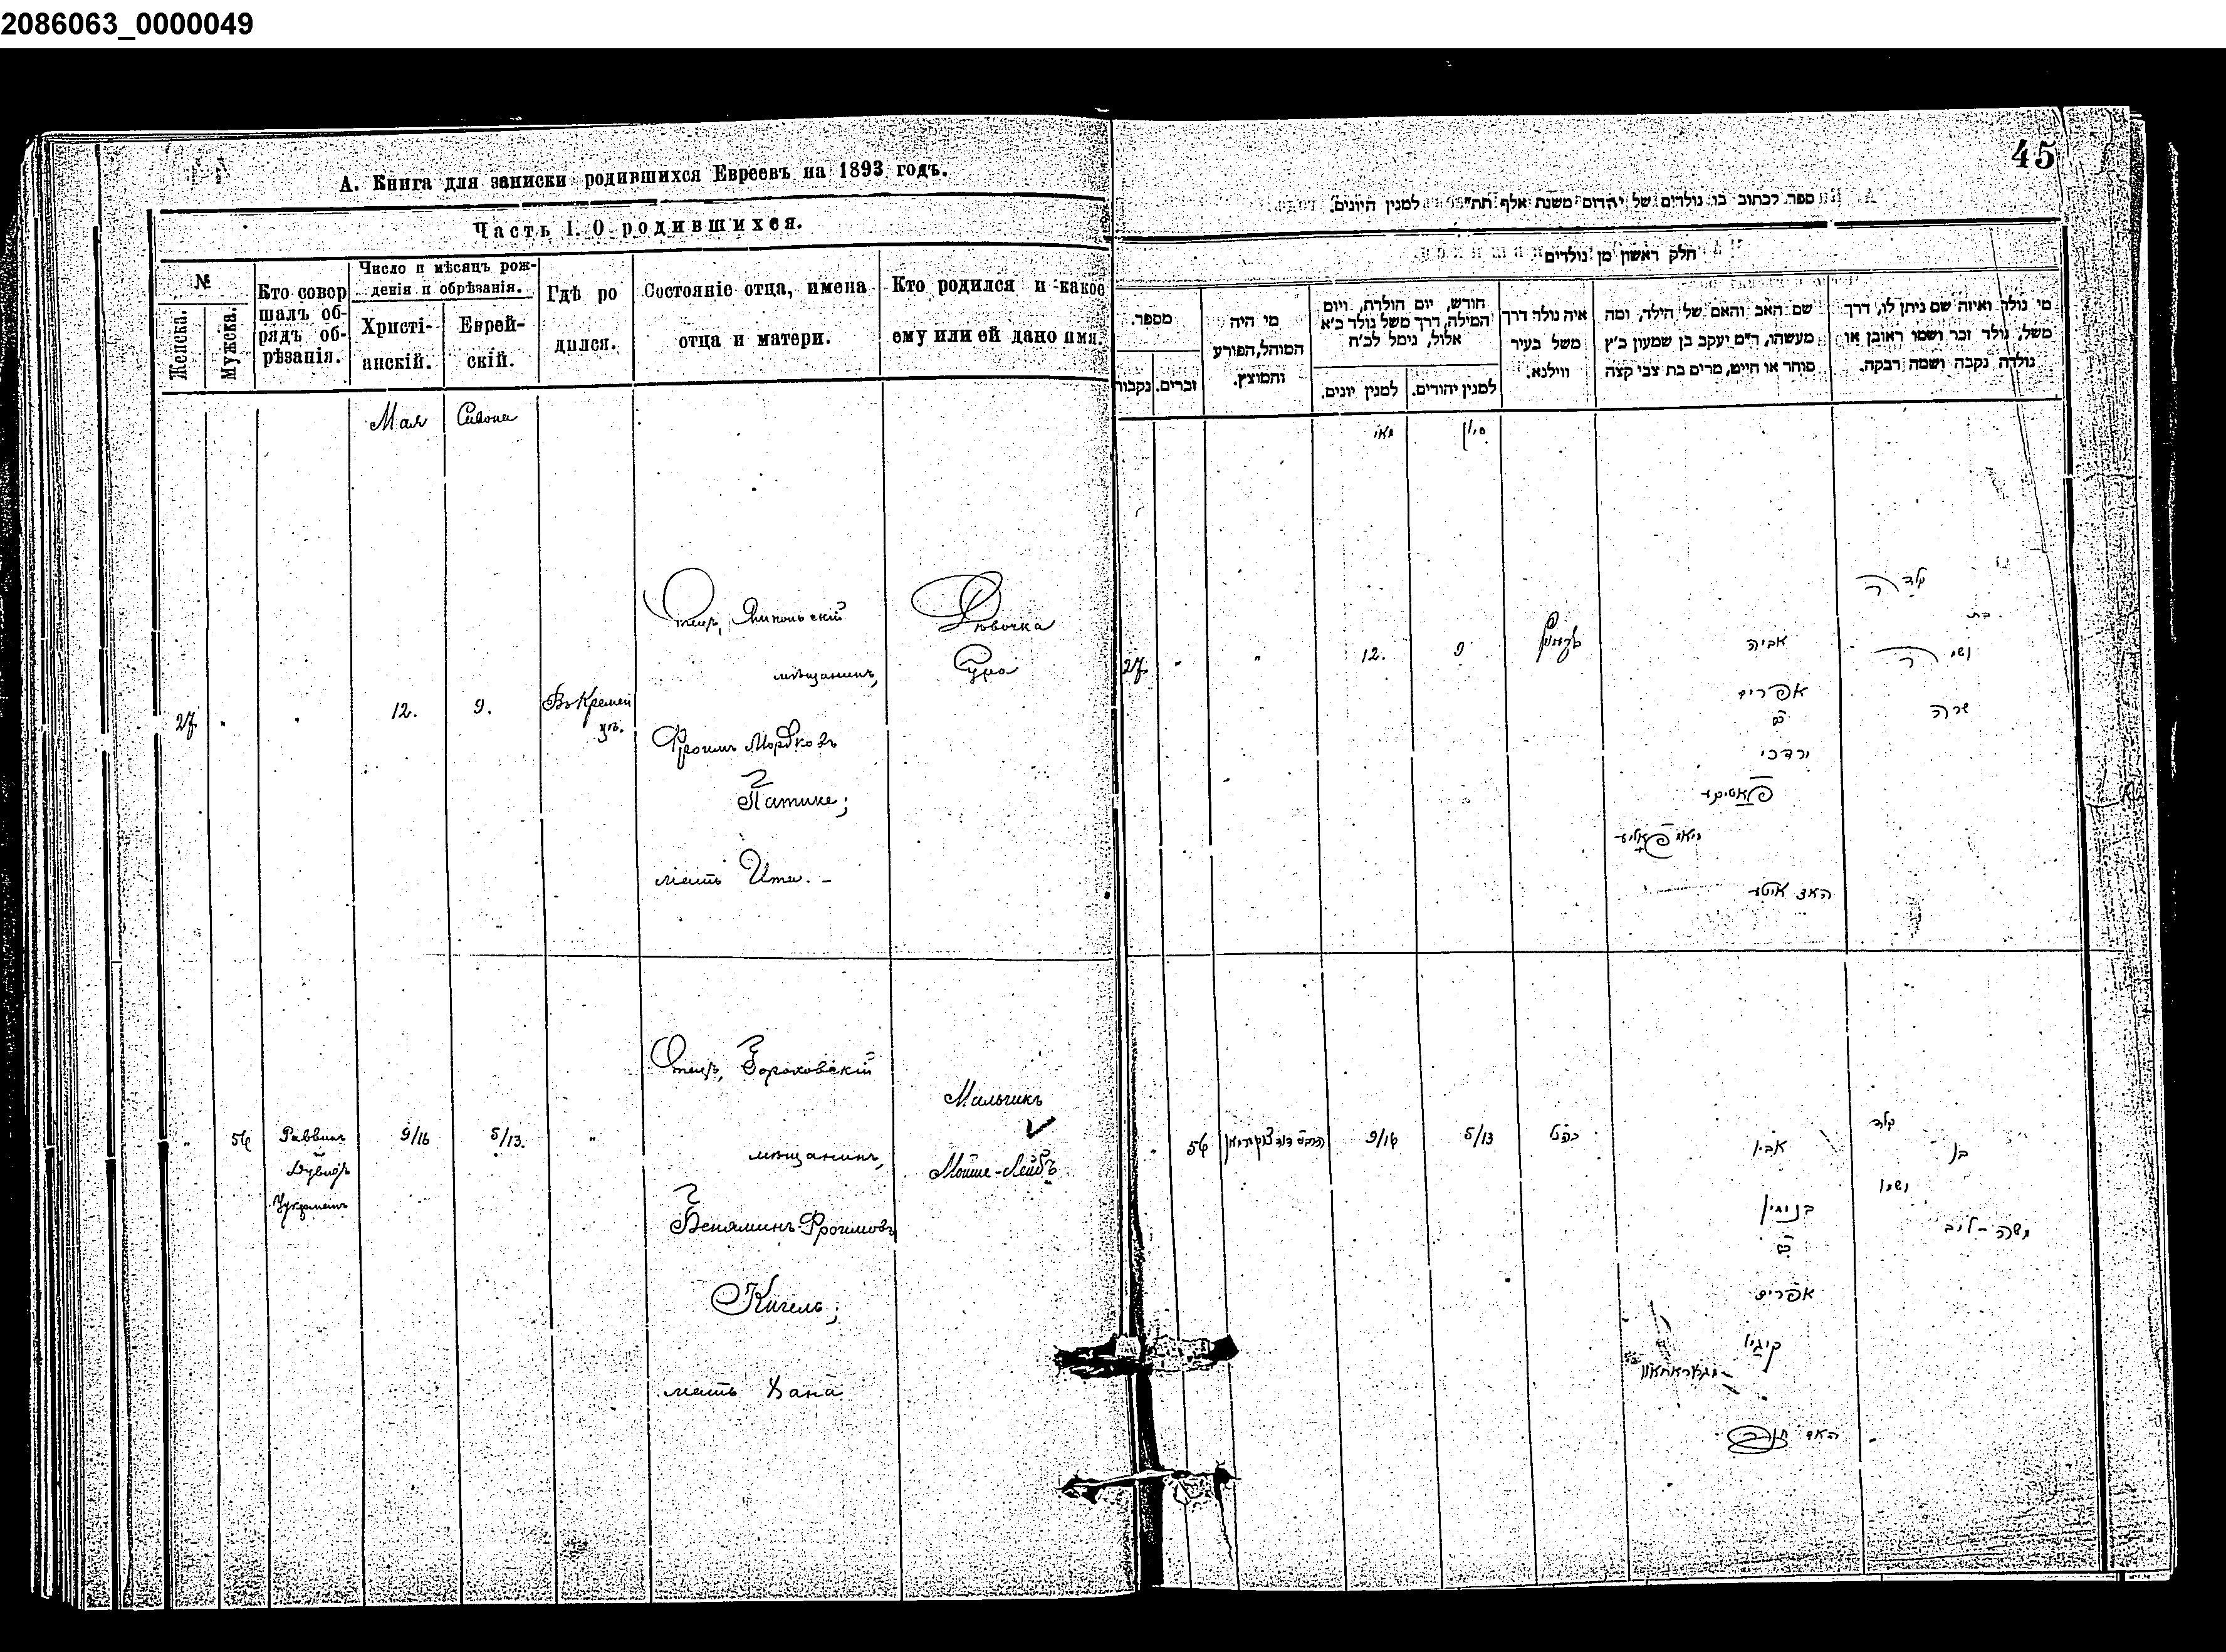 2086063_0000049
А. Книга для записки родившихся Евреевъ на 1893 годъ.
Часть I. О родившихся.
№
Женска.
Мужска.
Кто совер
шалъ об-
рядъ об-
рѣзанія.
Число и мѣсяцъ рож-
денія и обрѣзанія.
Христі-
анскій.
Еврей-
скій.
Гдѣ ро
дился.
Состояніе отца, имена
отца и матери.
Кто родился и какое
ему или ей дано имя.
Мая
Сивона
27
"
"
12.
9.
Въ Кремен
цѣ.
Отецъ,
мѣщанинъ,
Фроимъ Мордковъ
Патике;
мать Ита. –
Дѣвочка
Сура
"
56
Раввинъ
9/16
5/13.
"
Отецъ, Гороховскій
мѣщанинъ,
Беняминъ Фроимовъ
Кигель;
мать Хана
Мальчикъ
Мойше-Лейбъ
45
ספר לכתוב בו נולדים של יהדום משנת אלף תת" למנין היונים.
חלק ראשון מן נולדים
מספר.
נקבות
זכרים.
מי היה
המוהל, הפורע
והמוצץ.
חודש, יום הולדת, ויום
המילה, דרך משל נולד כ'א
אלול, נימל לכ'ח
למנין יונים.
למנין יהודים.
איה נולד דרך
משל בעיר
ווילנא.
שם האב והאם של הילד, ומה
מעשהו, ד"מ יעקב בן שמעון כ'ץ
סוחר או חייט, מרים בת צבי קצה
מי נולד ואיזה שם ניתן לו, דרך
משל, נולד זכר ושמו ראובן או
נולדה נקבה ושמה רבקה.
מאי
סיון
27
"
"
12.
9
אביה
אפרים
מרדכי
פאטיקע
האם איטע
ילד
בת
שרה
"
56
9/16
5/13
כנ"ל
אביו
בנימין
אפרים
קיגיל
האם חנה
ילד
בן
ושמו
משה-ליב